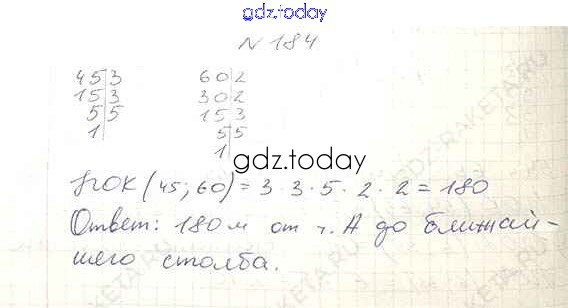 gdz.today
N 184
45 3 60 2
15 3 30 2
5 5 15 3
1 5 5
1
gdz.today
НОК (45; 60) = 3 · 3 · 5 · 2 · 2 = 180
Ответ: 180 м от т. А до ближай-
шего столба.